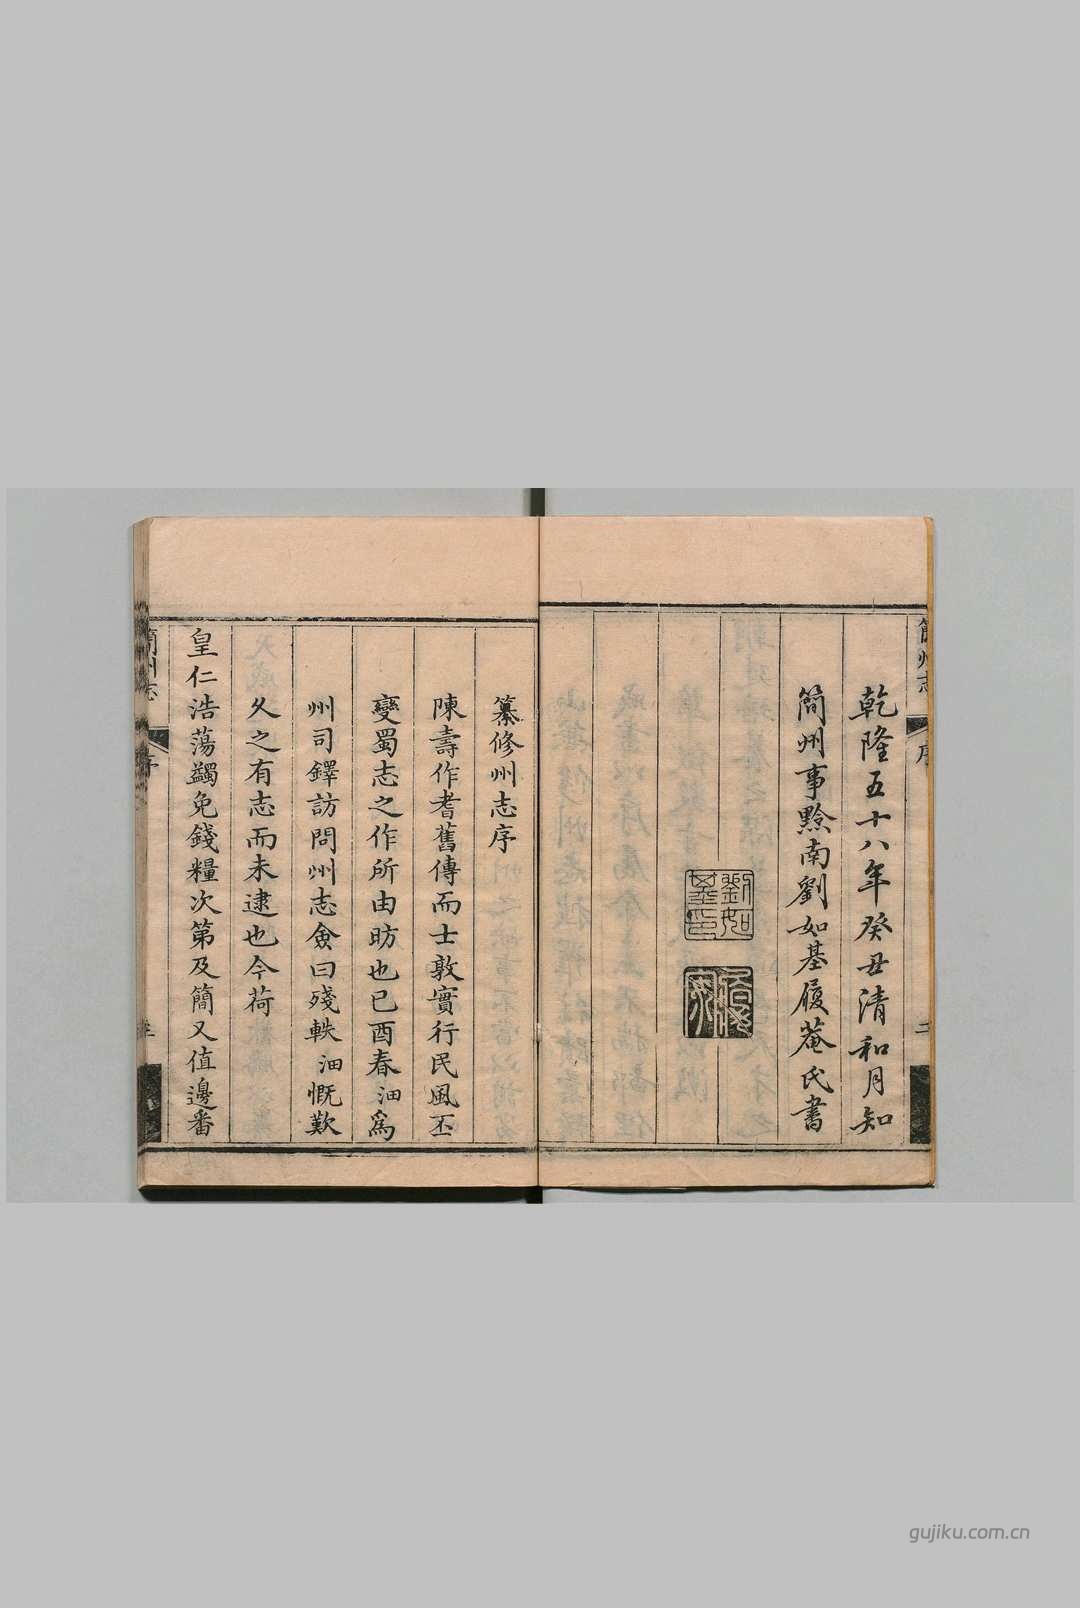 簡州志
序
乾隆五十八年癸丑清和月知
簡州事黔南劉如基履菴氏書
劉如基印
纂修州志序
陳壽作耆舊傳而士敦實行民風丕
變蜀志之作所由昉也已酉春沺爲
州司鐸訪問州志僉曰殘軼沺慨歎
久之有志而未逮也今荷
皇仁浩蕩蠲免錢糧次第及簡又值邊番
簡州志
序
gujiku.com.cn